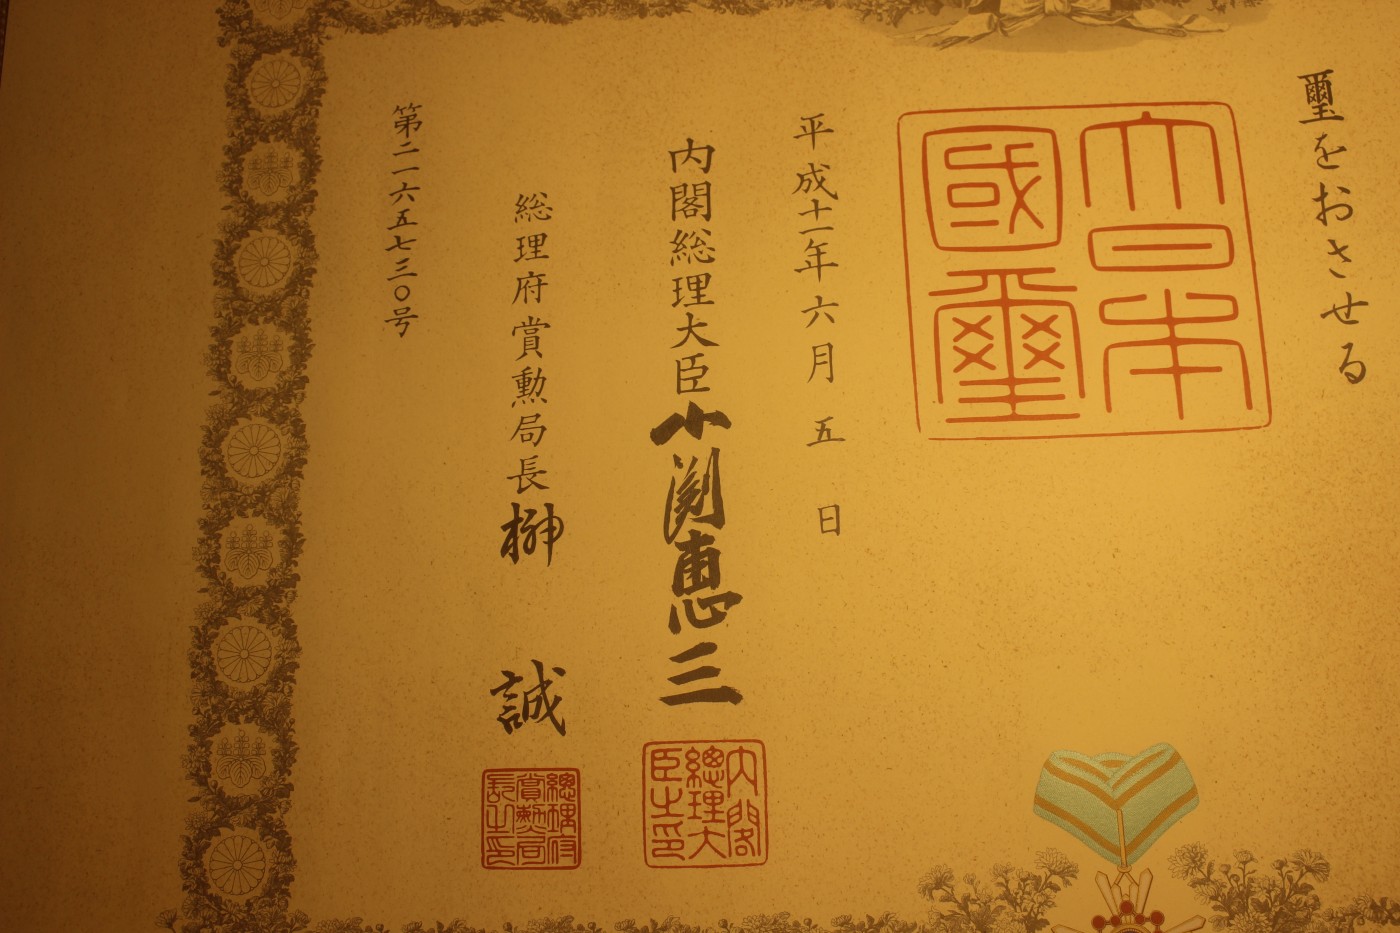 璽をおさせる
大日本
國璽
平成十一年六月五日
内閣総理大臣小渕恵三
内閣
總理大
臣之印
総理府賞勲局長榊誠
總理府
賞勲局
長之印
第二一六五七三〇号